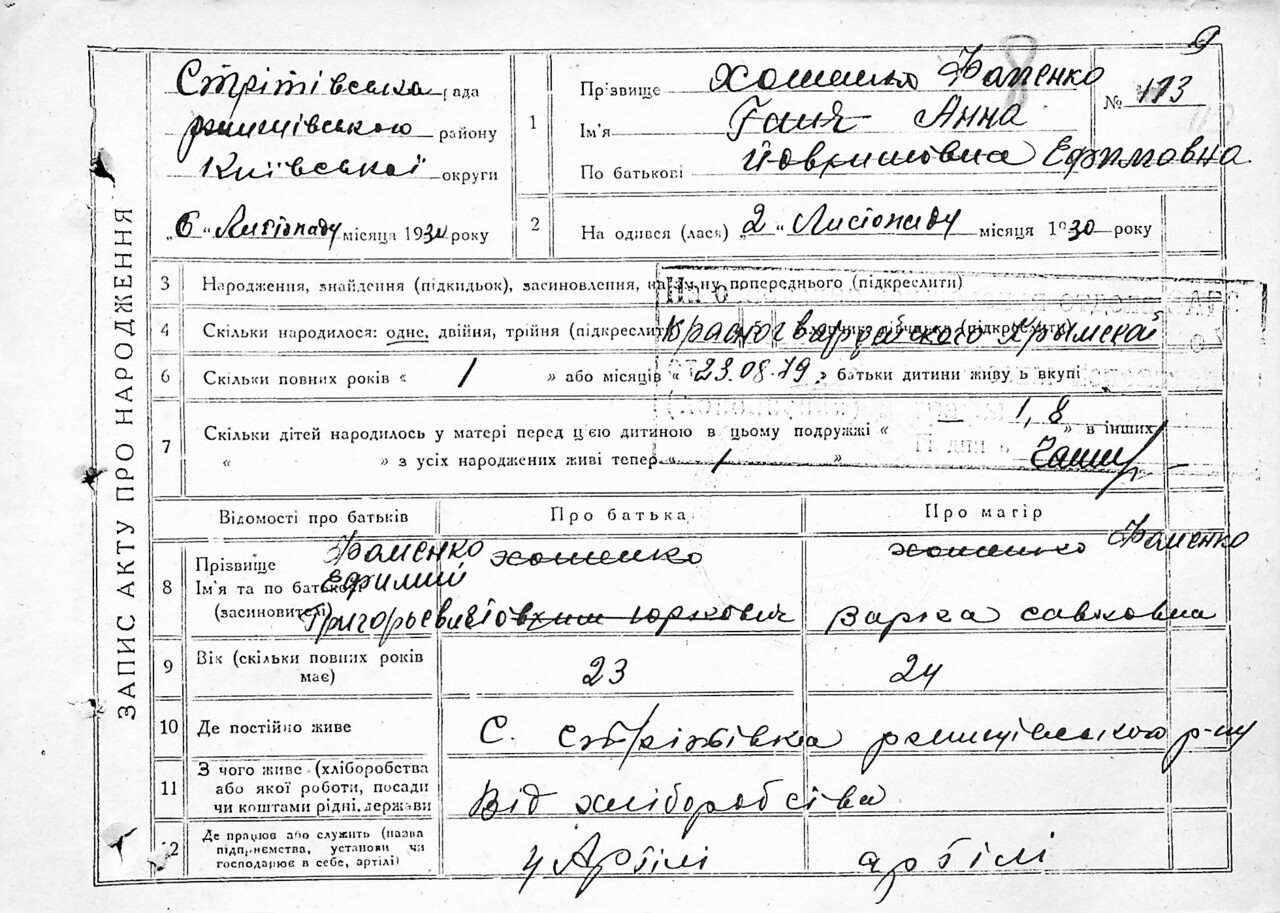 9
8
ЗАПИС АКТУ ПРО НАРОДЖЕННЯ
Стрітівська рада
ржищівського району
Київської округи
„6" Листопаду місяця 1930 року
1
Прізвище Хоменко Фоменко
Ім'я Ганя Анна
По батькові Йовхимовна Ефимовна
№ 113
2
На одився (лася) „2" Листопаду місяця 1930 року
3 Народження, знайдення (підкидьок), засиновлення, на зміну попереднього (підкреслити)
4 Скільки народилося: одне, двійня, трійня (підкреслити)
Красногвардейского Крымской
6 Скільки повних років « 1 » або місяців « » батьки дитини живуть вкупі
23.08.79
7 Скільки дітей народилось у матері перед цією дитиною в цьому подружжі « — » в інших
1, 8
« » з усіх народжених живі тепер « 1 »
Відомості про батьків
Про батька
Про матір
8 Прізвище
Ім'я та по батькові
(засновителі)
Фоменко Хоменко
Ефимий
Григорьевич Йовхим Юркович
Хоменко Фоменко
Варка Савковна
9 Вік (скільки повних років має) 23 24
10 Де постійно живе С. Стрітівка ржищівського р-ну
11 З чого живе (хліборобства
або якої роботи, посади
чи коштами рідні, держави
Від хліборобства
12 Де працює або служить (назва
підприємства, установи чи
господарює в себе, артілі)
у Артілі артілі